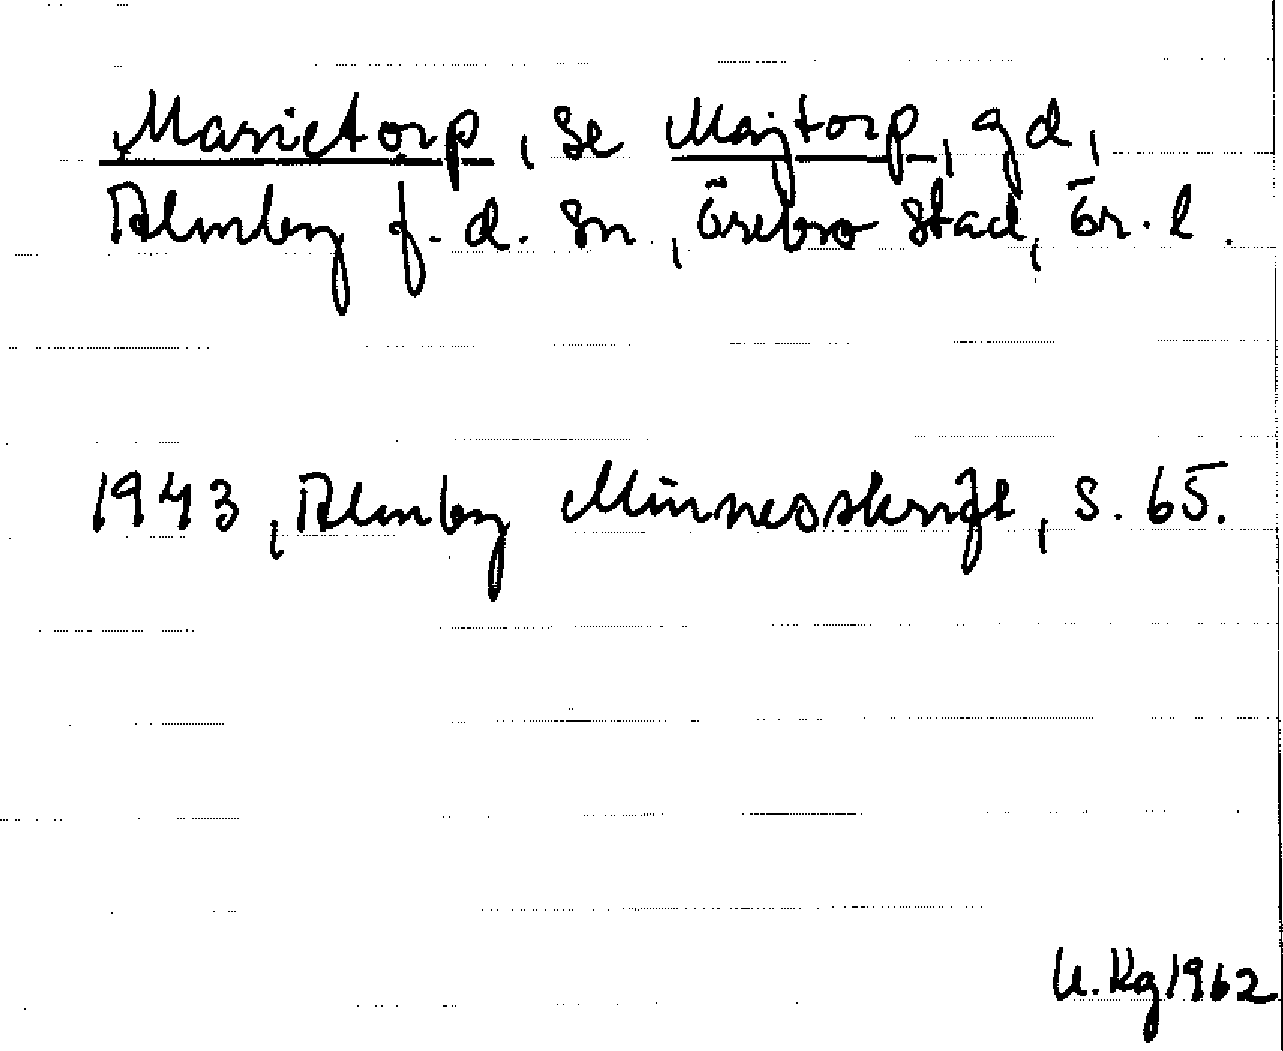 Marietorp, se Majtorp, gd,
Almby f.d. sn, Örebro stad, Ör. l.
1943, Almby Minnesskrift, s. 65.
U.Kg 1962